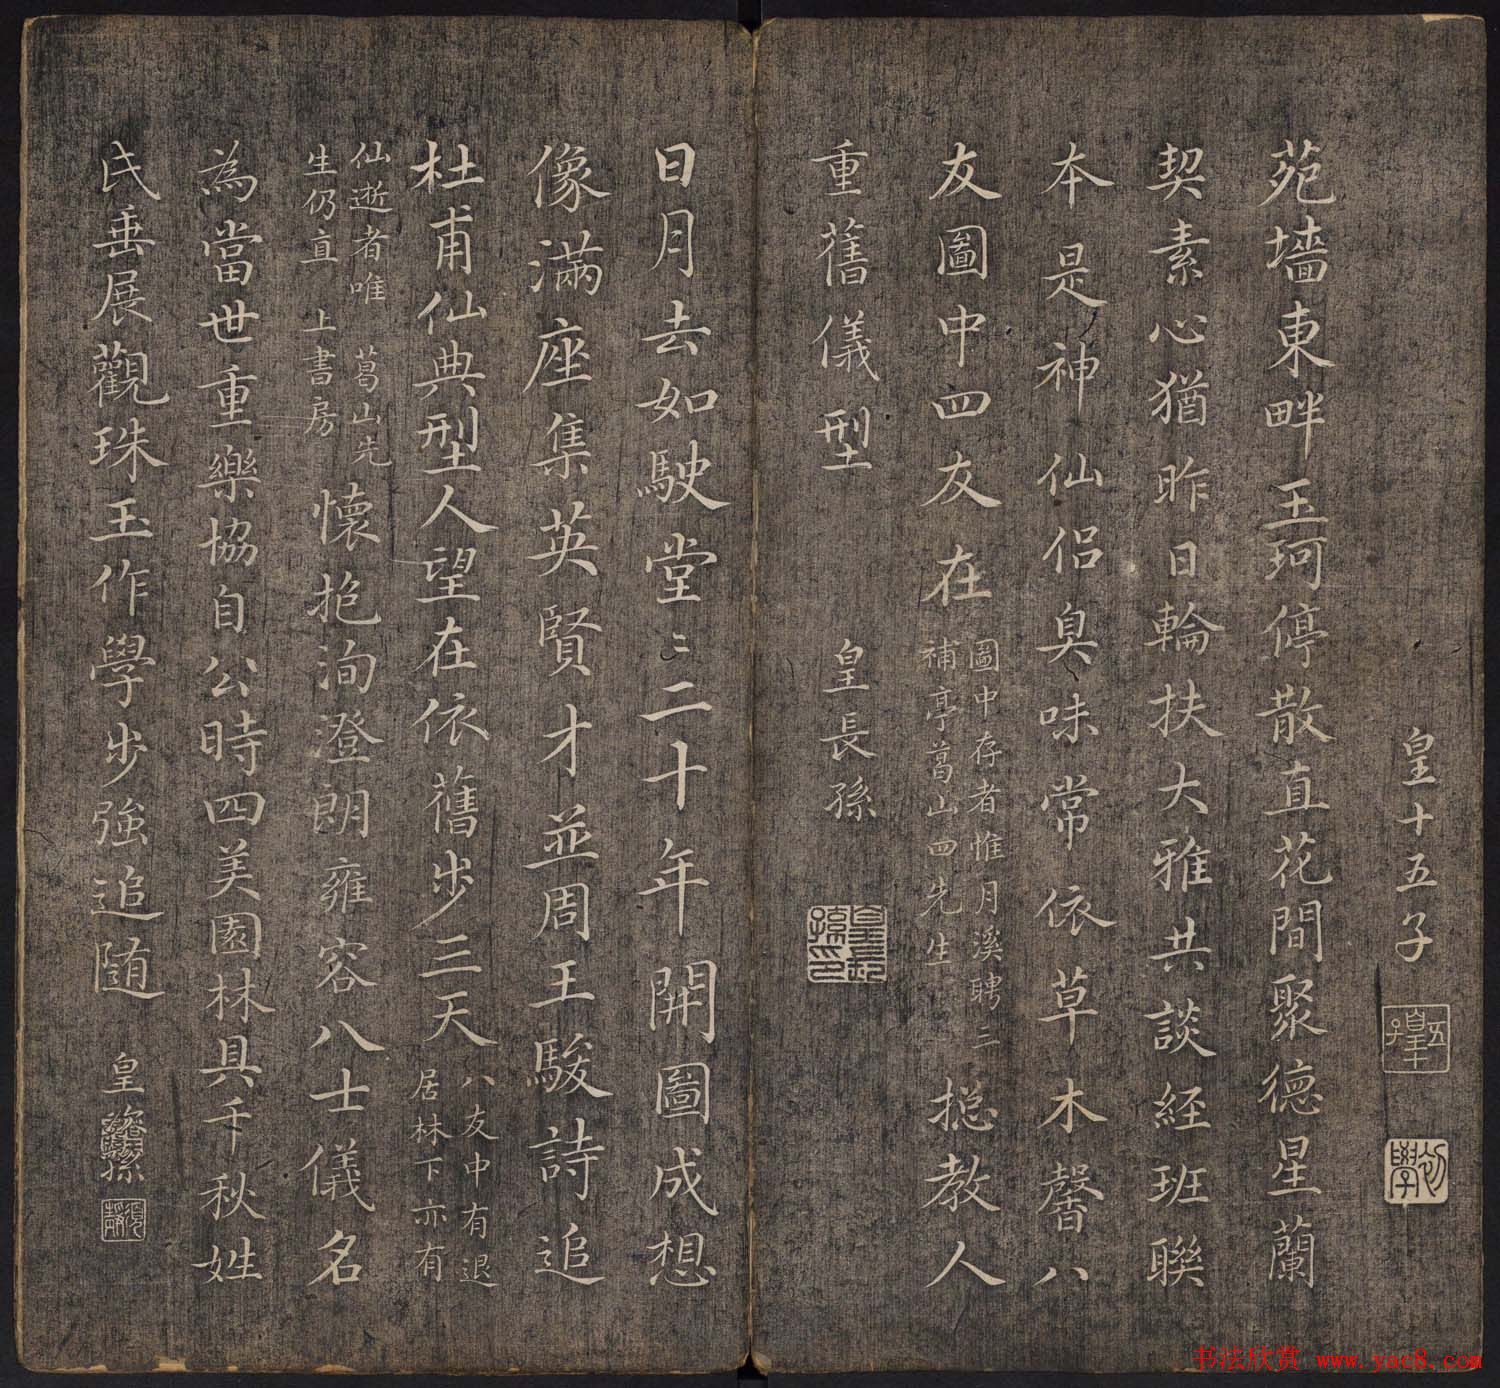 皇十五子
苑墻東畔玉珂停散直花間聚德星蘭
契素心猶昨日輪扶大雅共談経班聯
本是神仙侣臭味常依草木馨八
友圖中四友在
圖中存者惟月溪聘三
補亭葛山四先生
摠教人
重舊儀型
皇長孫
皇長孫印
日月去如駛堂〻二十年開圖成想
像滿座集英賢才並周王駿詩追
杜甫仙典型人望在依舊步三天
八友中有退
居林下亦有
仙逝者唯葛山先
生仍直上書房
懷抱洵澄朗雍容八士儀名
為當世重樂協自公時四美園林具千秋姓
氏垂展觀珠玉作學步強追随
皇孫
书法欣赏 www.yac8.com